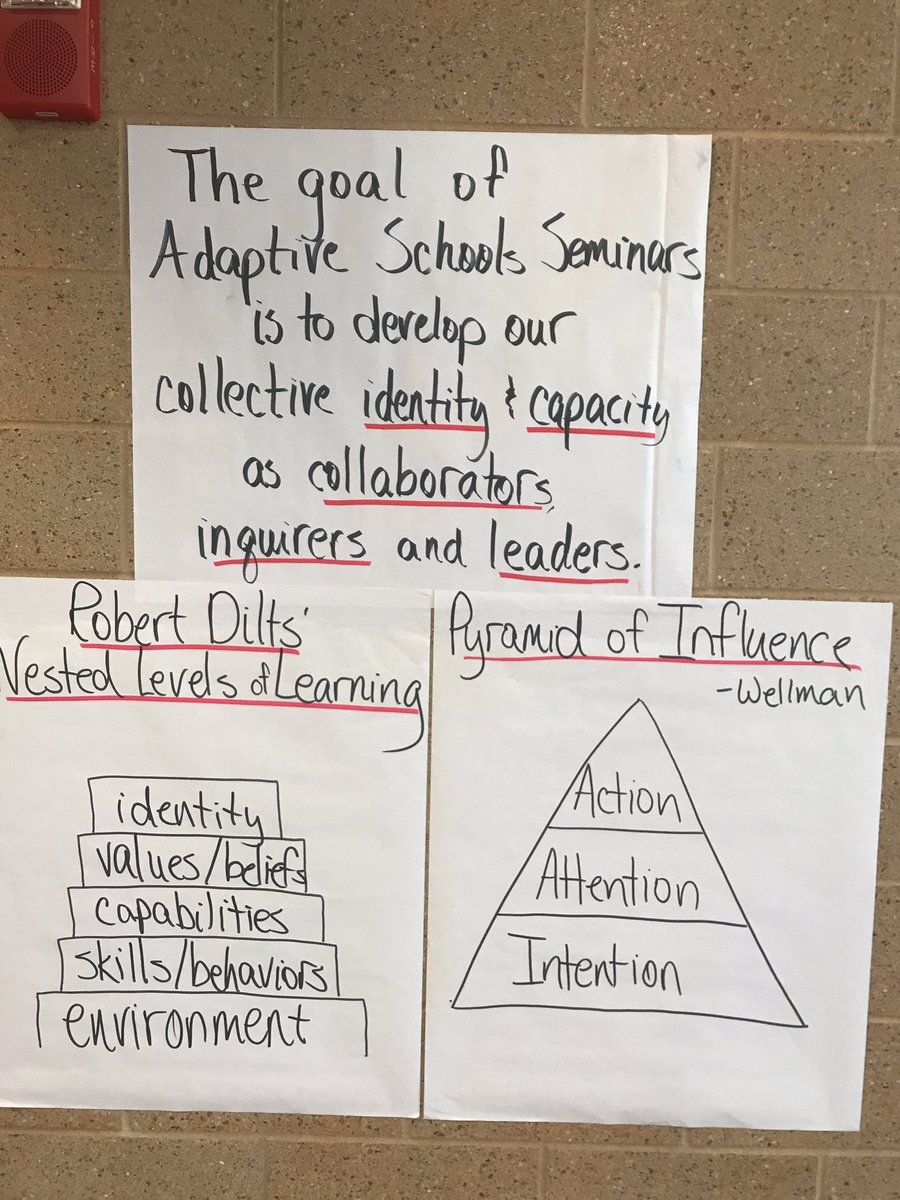 The goal of
Adaptive Schools Seminars
is to develop our
collective identity & capacity
as collaborators,
inquirers and leaders.
Robert Dilts'
Nested Levels of Learning
identity
values/beliefs
capabilities
skills/behaviors
environment
Pyramid of Influence
-Wellman
Action
Attention
Intention